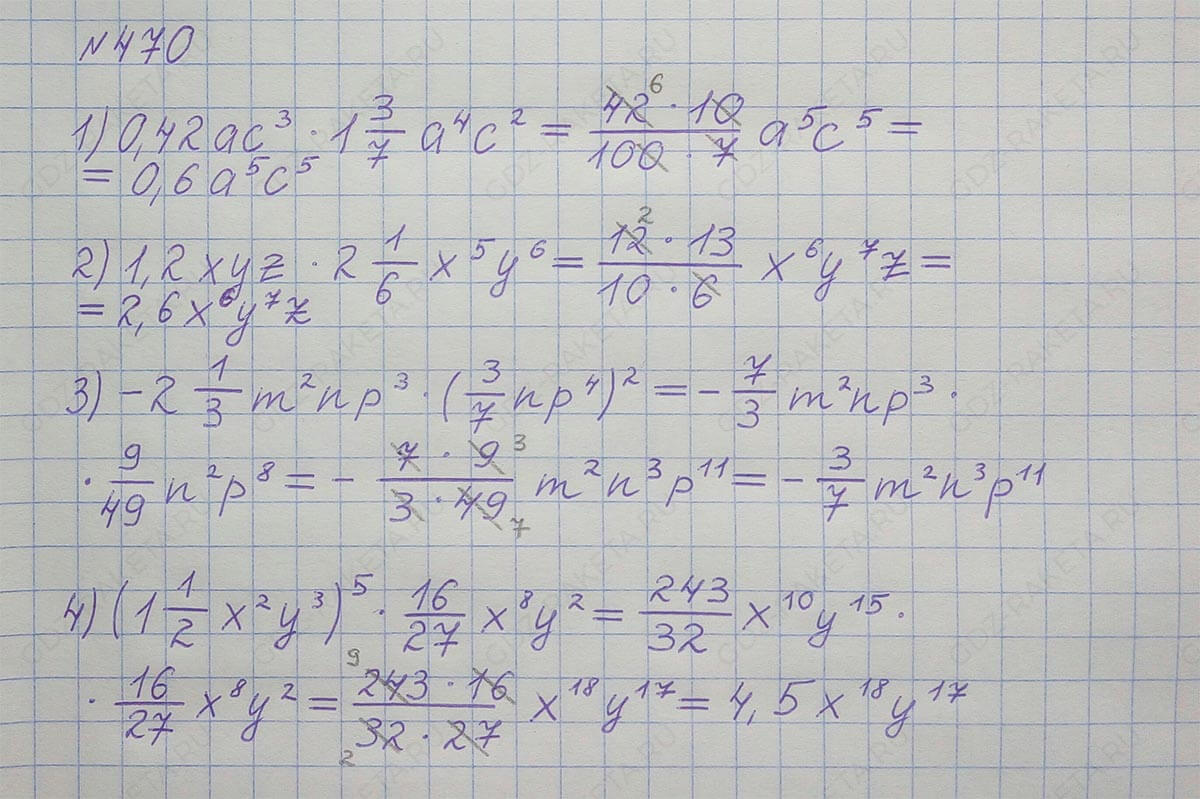 №470
1) 0,42ac³ · 1 3/7 a⁴c² = 42⁶ · 10 / 100 · 7 a⁵c⁵ =
= 0,6a⁵c⁵
2) 1,2xyz · 2 1/6 x⁵y⁶ = 12² · 13 / 10 · 6 x⁶y⁷z =
= 2,6x⁶y⁷z
3) -2 1/3 m²np³ · (3/7 np⁴)² = - 7/3 m²np³ ·
· 9/49 n²p⁸ = - 7 · 9³ / 3 · 49₇ m²n³p¹¹ = - 3/7 m²n³p¹¹
4) (1 1/2 x²y³)⁵ · 16/27 x⁸y² = 243/32 x¹⁰y¹⁵ ·
· 16/27 x⁸y² = ⁹243 · 16 / ₂32 · 27 x¹⁸y¹⁷ = 4,5x¹⁸y¹⁷
GDZ-RAKETA.RU